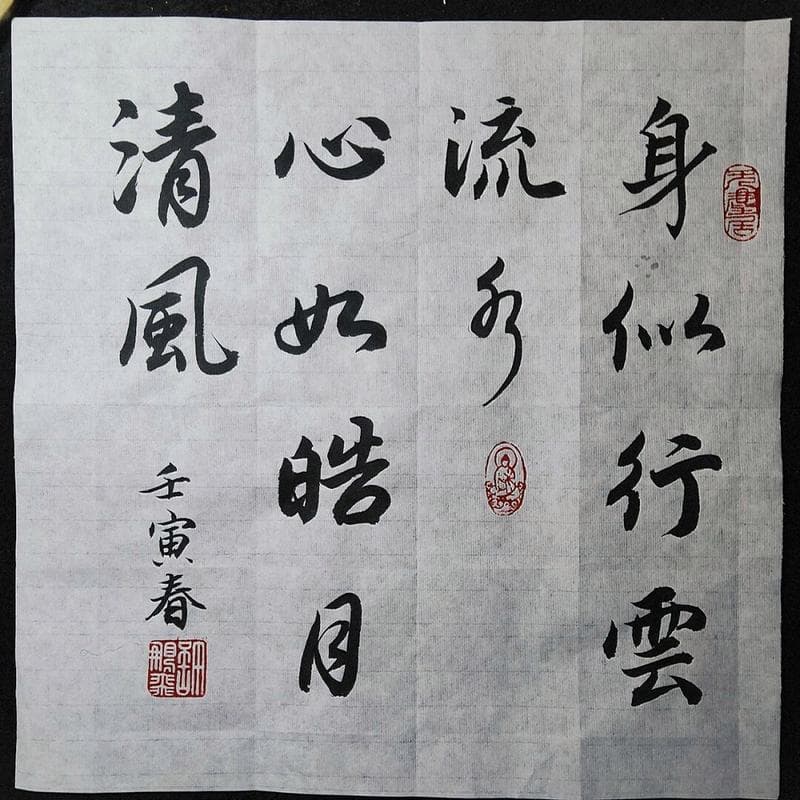 身似行雲
流水
心如皓月
清風
壬寅春